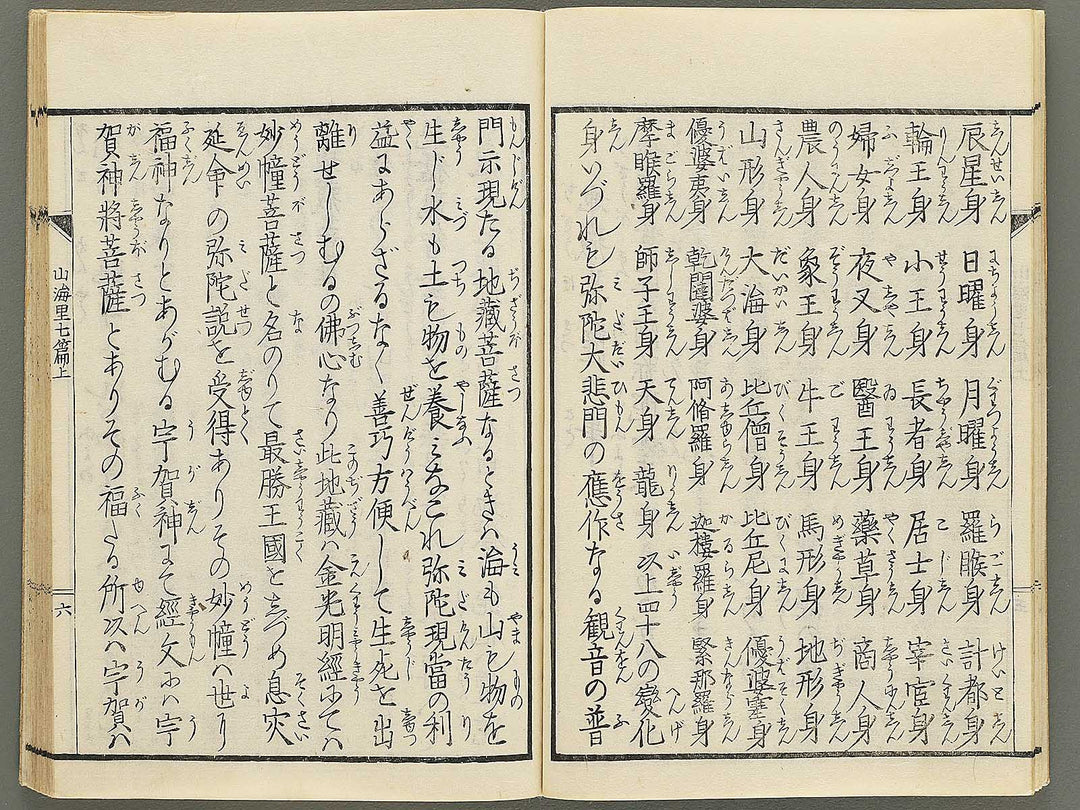 辰星身 日曜身 月曜身 羅睺身 計都身
輪王身 小王身 長者身 居士身 宰官身
婦女身 夜叉身 醫王身 藥草身 商人身
農人身 象王身 牛王身 馬形身 地形身
山形身 大海身 比丘僧身 比丘尼身 優婆塞身
優婆夷身 乾闥婆身 阿脩羅身 迦樓羅身 緊那羅身
摩睺羅身 師子王身 天身 龍身 以上四十八の變化
身いづれも弥陀大悲門の應作なる観音の普
門示現たる地藏菩薩なるときハ海も山も物を
生じ水も土も物を養ミなこれ弥陀現當の利
益にあらざるなく善巧方便して生死を出
離せしむるの佛心なり此地藏ハ金光明經にてハ
妙幢菩薩と名のりて最勝王國をしづめ息灾
延命の弥陀説を受得ありその妙幢ハ世り
福神なりとあがむる宇賀神にて經文にハ宇
賀神將菩薩とありその福たる所以ハ宇賀ハ
山海里七篇上
六